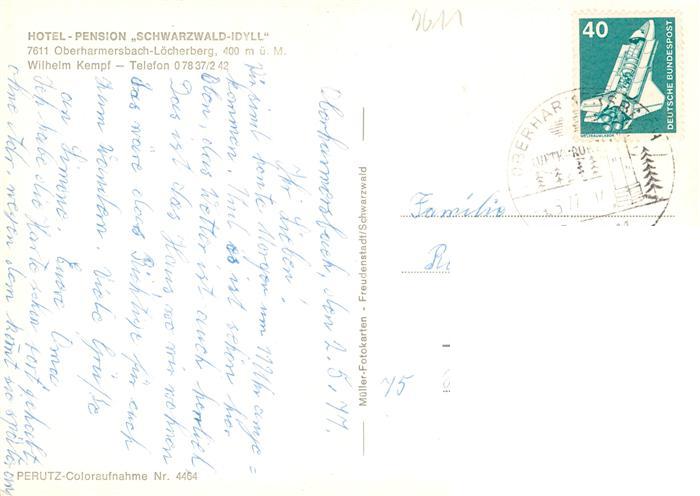 HOTEL - PENSION „SCHWARZWALD-IDYLL"
7611 Oberharmersbach-Löcherberg, 400 m ü. M.
Wilhelm Kempf – Telefon 0 78 37/2 42
Oberharmersbach, den 2.5.77.
Ihr Lieben!
Wir sind heute Morgen um 11 Uhr ange=
kommen. Und es ist schön hier
oben, das Wetter ist auch herrlich
Das ist das Haus wo wir wohnen
das wäre das Richtige für euch
zum Wandern. Viele Grüße
an Simone. Eure Oma
Ich habe die Karte schon fort gehabt
ohne Adr, wegen dem kommt sie später an
PERUTZ-Coloraufnahme Nr. 4464
Müller-Fotokarten - Freudenstadt/Schwarzwald
3611
40
DEUTSCHE BUNDESPOST
OBERHARMERSBACH
LUFTKURORT
Familie
75